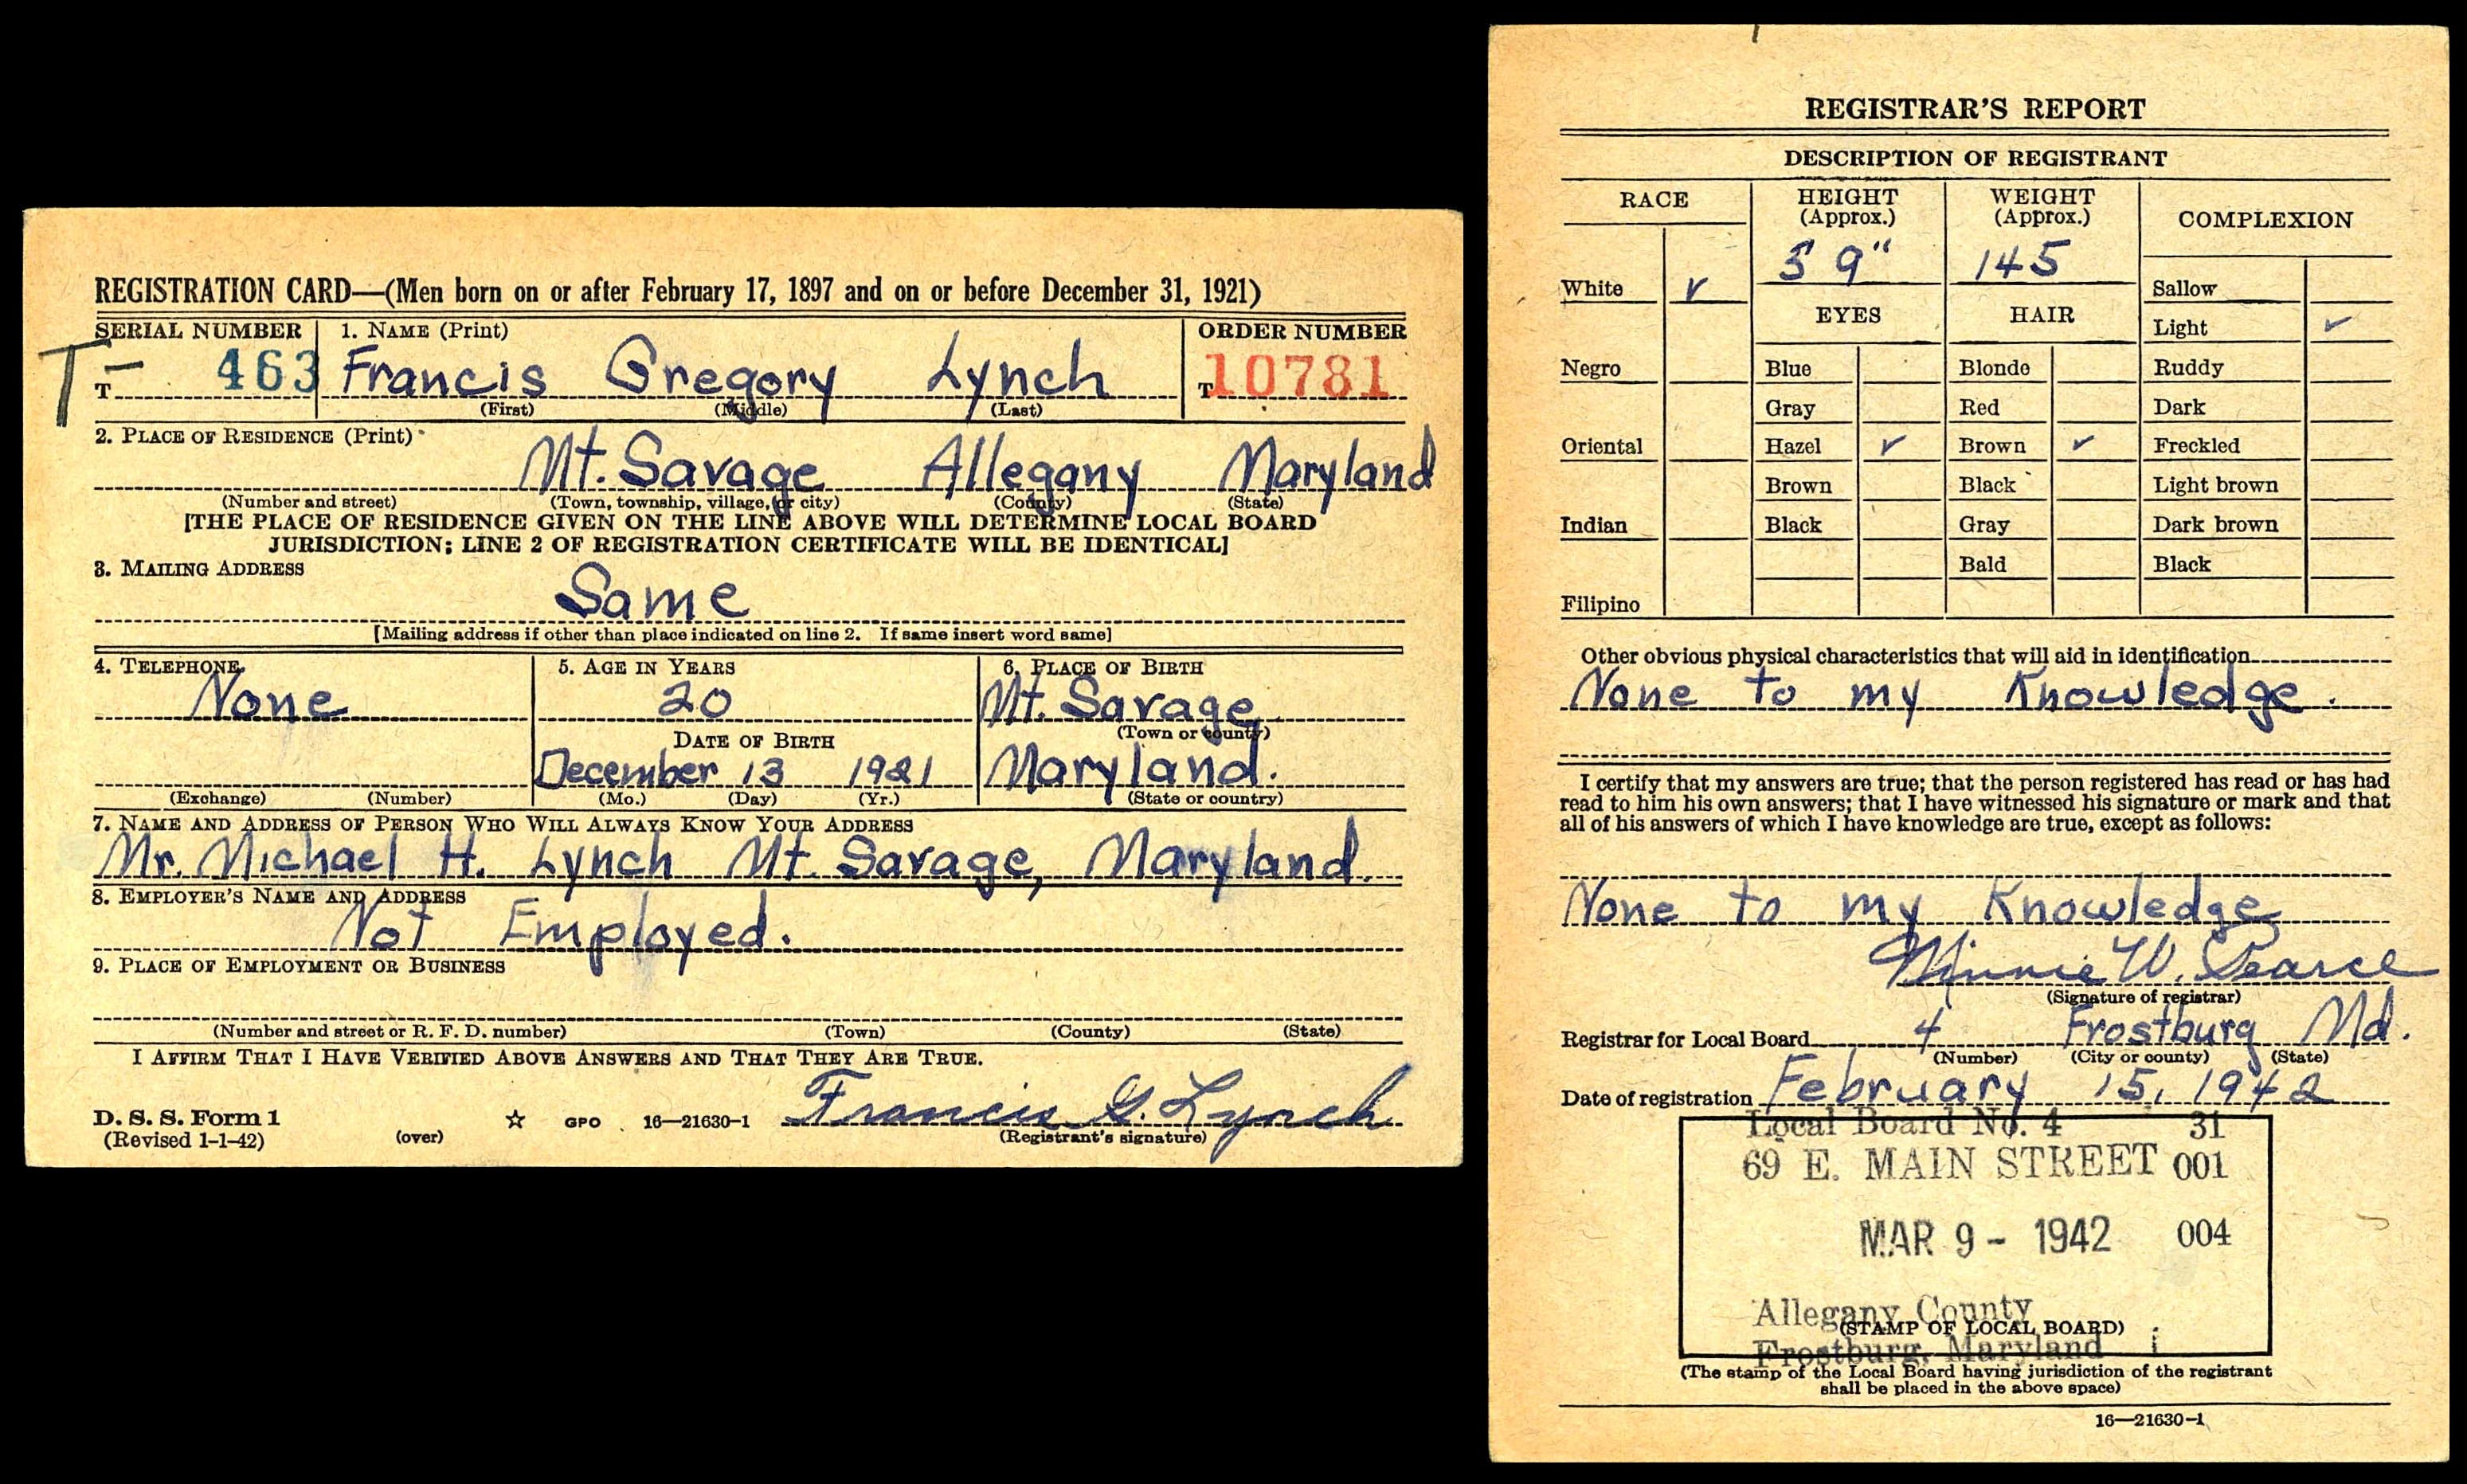 REGISTRATION CARD—(Men born on or after February 17, 1897 and on or before December 31, 1921)
SERIAL NUMBER 1. NAME (Print) ORDER NUMBER
T— T 463 Francis Gregory Lynch T 10781
(First) (Middle) (Last)
2. PLACE OF RESIDENCE (Print)
Mt. Savage Allegany Maryland
(Number and street) (Town, township, village, or city) (County) (State)
[THE PLACE OF RESIDENCE GIVEN ON THE LINE ABOVE WILL DETERMINE LOCAL BOARD
JURISDICTION; LINE 2 OF REGISTRATION CERTIFICATE WILL BE IDENTICAL]
3. MAILING ADDRESS
Same
[Mailing address if other than place indicated on line 2. If same insert word same]
4. TELEPHONE 5. AGE IN YEARS 6. PLACE OF BIRTH
None 20 Mt. Savage
(Town or county)
DATE OF BIRTH
December 13 1921 Maryland.
(Exchange) (Number) (Mo.) (Day) (Yr.) (State or country)
7. NAME AND ADDRESS OF PERSON WHO WILL ALWAYS KNOW YOUR ADDRESS
Mr. Michael H. Lynch Mt. Savage, Maryland.
8. EMPLOYER'S NAME AND ADDRESS
Not Employed.
9. PLACE OF EMPLOYMENT OR BUSINESS
(Number and street or R. F. D. number) (Town) (County) (State)
I AFFIRM THAT I HAVE VERIFIED ABOVE ANSWERS AND THAT THEY ARE TRUE.
D. S. S. Form 1 Francis G. Lynch
(Revised 1-1-42) (over) ☆ GPO 16—21630-1 (Registrant's signature)
REGISTRAR'S REPORT
DESCRIPTION OF REGISTRANT
RACE HEIGHT (Approx.) WEIGHT (Approx.) COMPLEXION
5 9" 145
White ✓ Sallow
EYES HAIR Light ✓
Negro Blue Blonde Ruddy
Gray Red Dark
Oriental Hazel ✓ Brown ✓ Freckled
Brown Black Light brown
Indian Black Gray Dark brown
Bald Black
Filipino
Other obvious physical characteristics that will aid in identification
None to my Knowledge.
I certify that my answers are true; that the person registered has read or has had
read to him his own answers; that I have witnessed his signature or mark and that
all of his answers of which I have knowledge are true, except as follows:
None to my Knowledge
Minnie W. Pearce
(Signature of registrar)
Registrar for Local Board 4 Frostburg Md.
(Number) (City or county) (State)
Date of registration February 15, 1942
Local Board No. 4 31
69 E. MAIN STREET 001
MAR 9 - 1942 004
Allegany County
(STAMP OF LOCAL BOARD)
Frostburg, Maryland
(The stamp of the Local Board having jurisdiction of the registrant
shall be placed in the above space)
16—21630-1